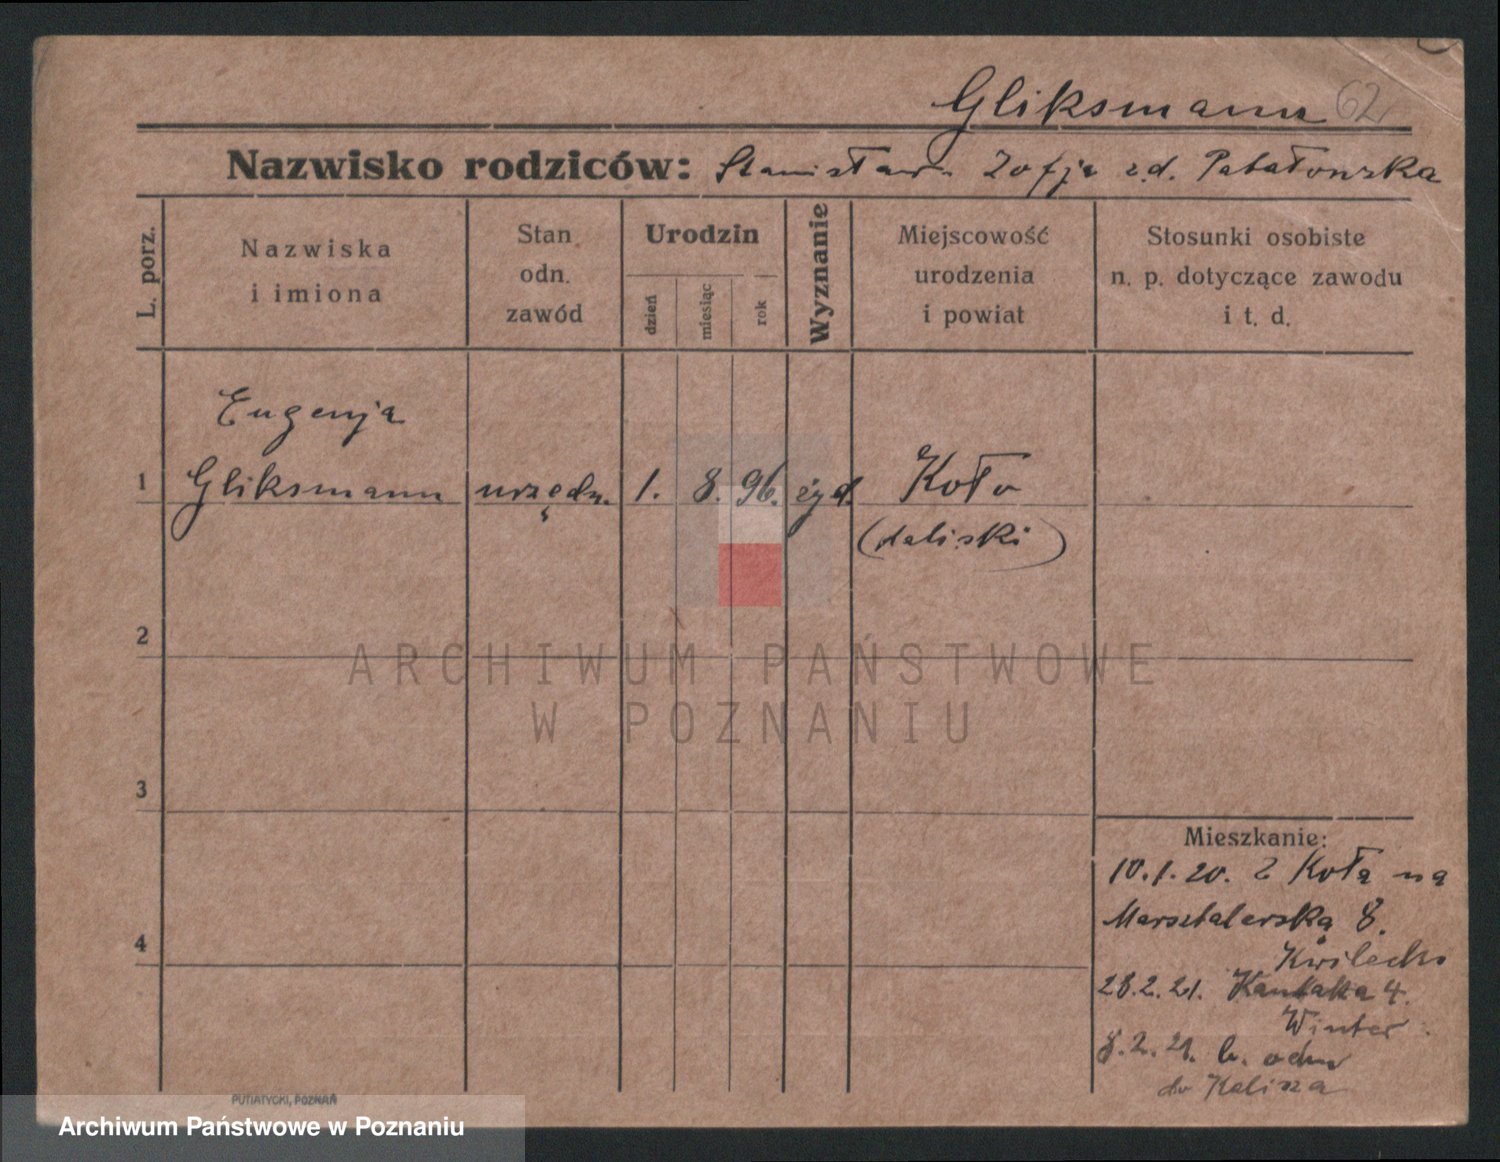 Gliksmann 62
Nazwisko rodziców: Stanisław Zofja z d.
L. porz.
Nazwiska
i imiona
Stan
odn.
zawód
Urodzin
dzień
miesiąc
rok
Wyznanie
Miejscowość
urodzenia
i powiat
Stosunki osobiste
n. p. dotyczące zawodu
i t. d.
Eugenja
1 Gliksmann urzędn. 1. 8. 96. żyd. Koło
(kaliski)
2
3
4
Mieszkanie:
10.1.20. z Koła na
Marsztalerską 8.
Kwilecki
28.2.21. Kantaka 4.
Winter
8.2.21.
do Kalisza
PUTIATYCKI, POZNAŃ
ARCHIWUM PAŃSTWOWE
W POZNANIU
Archiwum Państwowe w Poznaniu